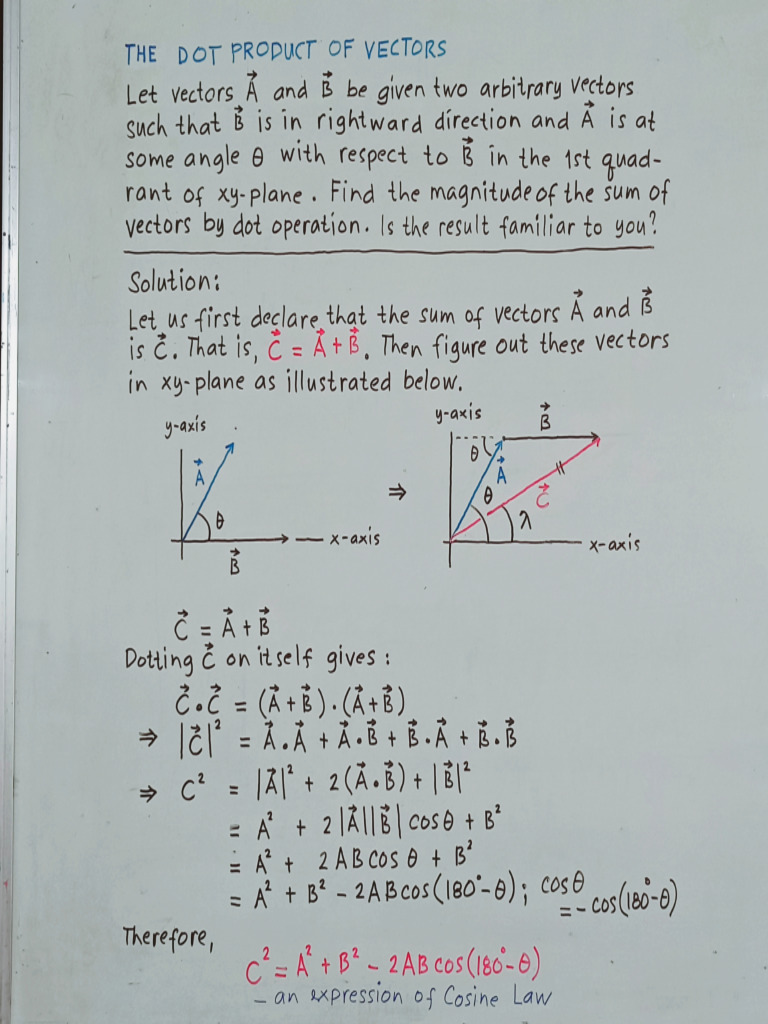 THE DOT PRODUCT OF VECTORS
Let vectors A⃗ and B⃗ be given two arbitrary vectors
such that B⃗ is in rightward direction and A⃗ is at
some angle θ with respect to B⃗ in the 1st quad-
rant of xy-plane. Find the magnitude of the sum of
vectors by dot operation. Is the result familiar to you?
Solution:
Let us first declare that the sum of vectors A⃗ and B⃗
is C⃗. That is, C⃗ = A⃗ + B⃗. Then figure out these vectors
in xy-plane as illustrated below.
y-axis
A⃗
θ
x-axis
B⃗
⇒
y-axis
B⃗
θ
A⃗
θ
C⃗
λ
x-axis
C⃗ = A⃗ + B⃗
Dotting C⃗ on itself gives:
C⃗·C⃗ = (A⃗+B⃗)·(A⃗+B⃗)
⇒ |C⃗|² = A⃗·A⃗ + A⃗·B⃗ + B⃗·A⃗ + B⃗·B⃗
⇒ C² = |A⃗|² + 2(A⃗·B⃗) + |B⃗|²
= A² + 2|A⃗||B⃗| cosθ + B²
= A² + 2AB cos θ + B²
= A² + B² - 2AB cos(180°-θ); cosθ
= - cos(180°-θ)
Therefore,
C² = A² + B² - 2AB cos(180°-θ)
- an expression of Cosine Law